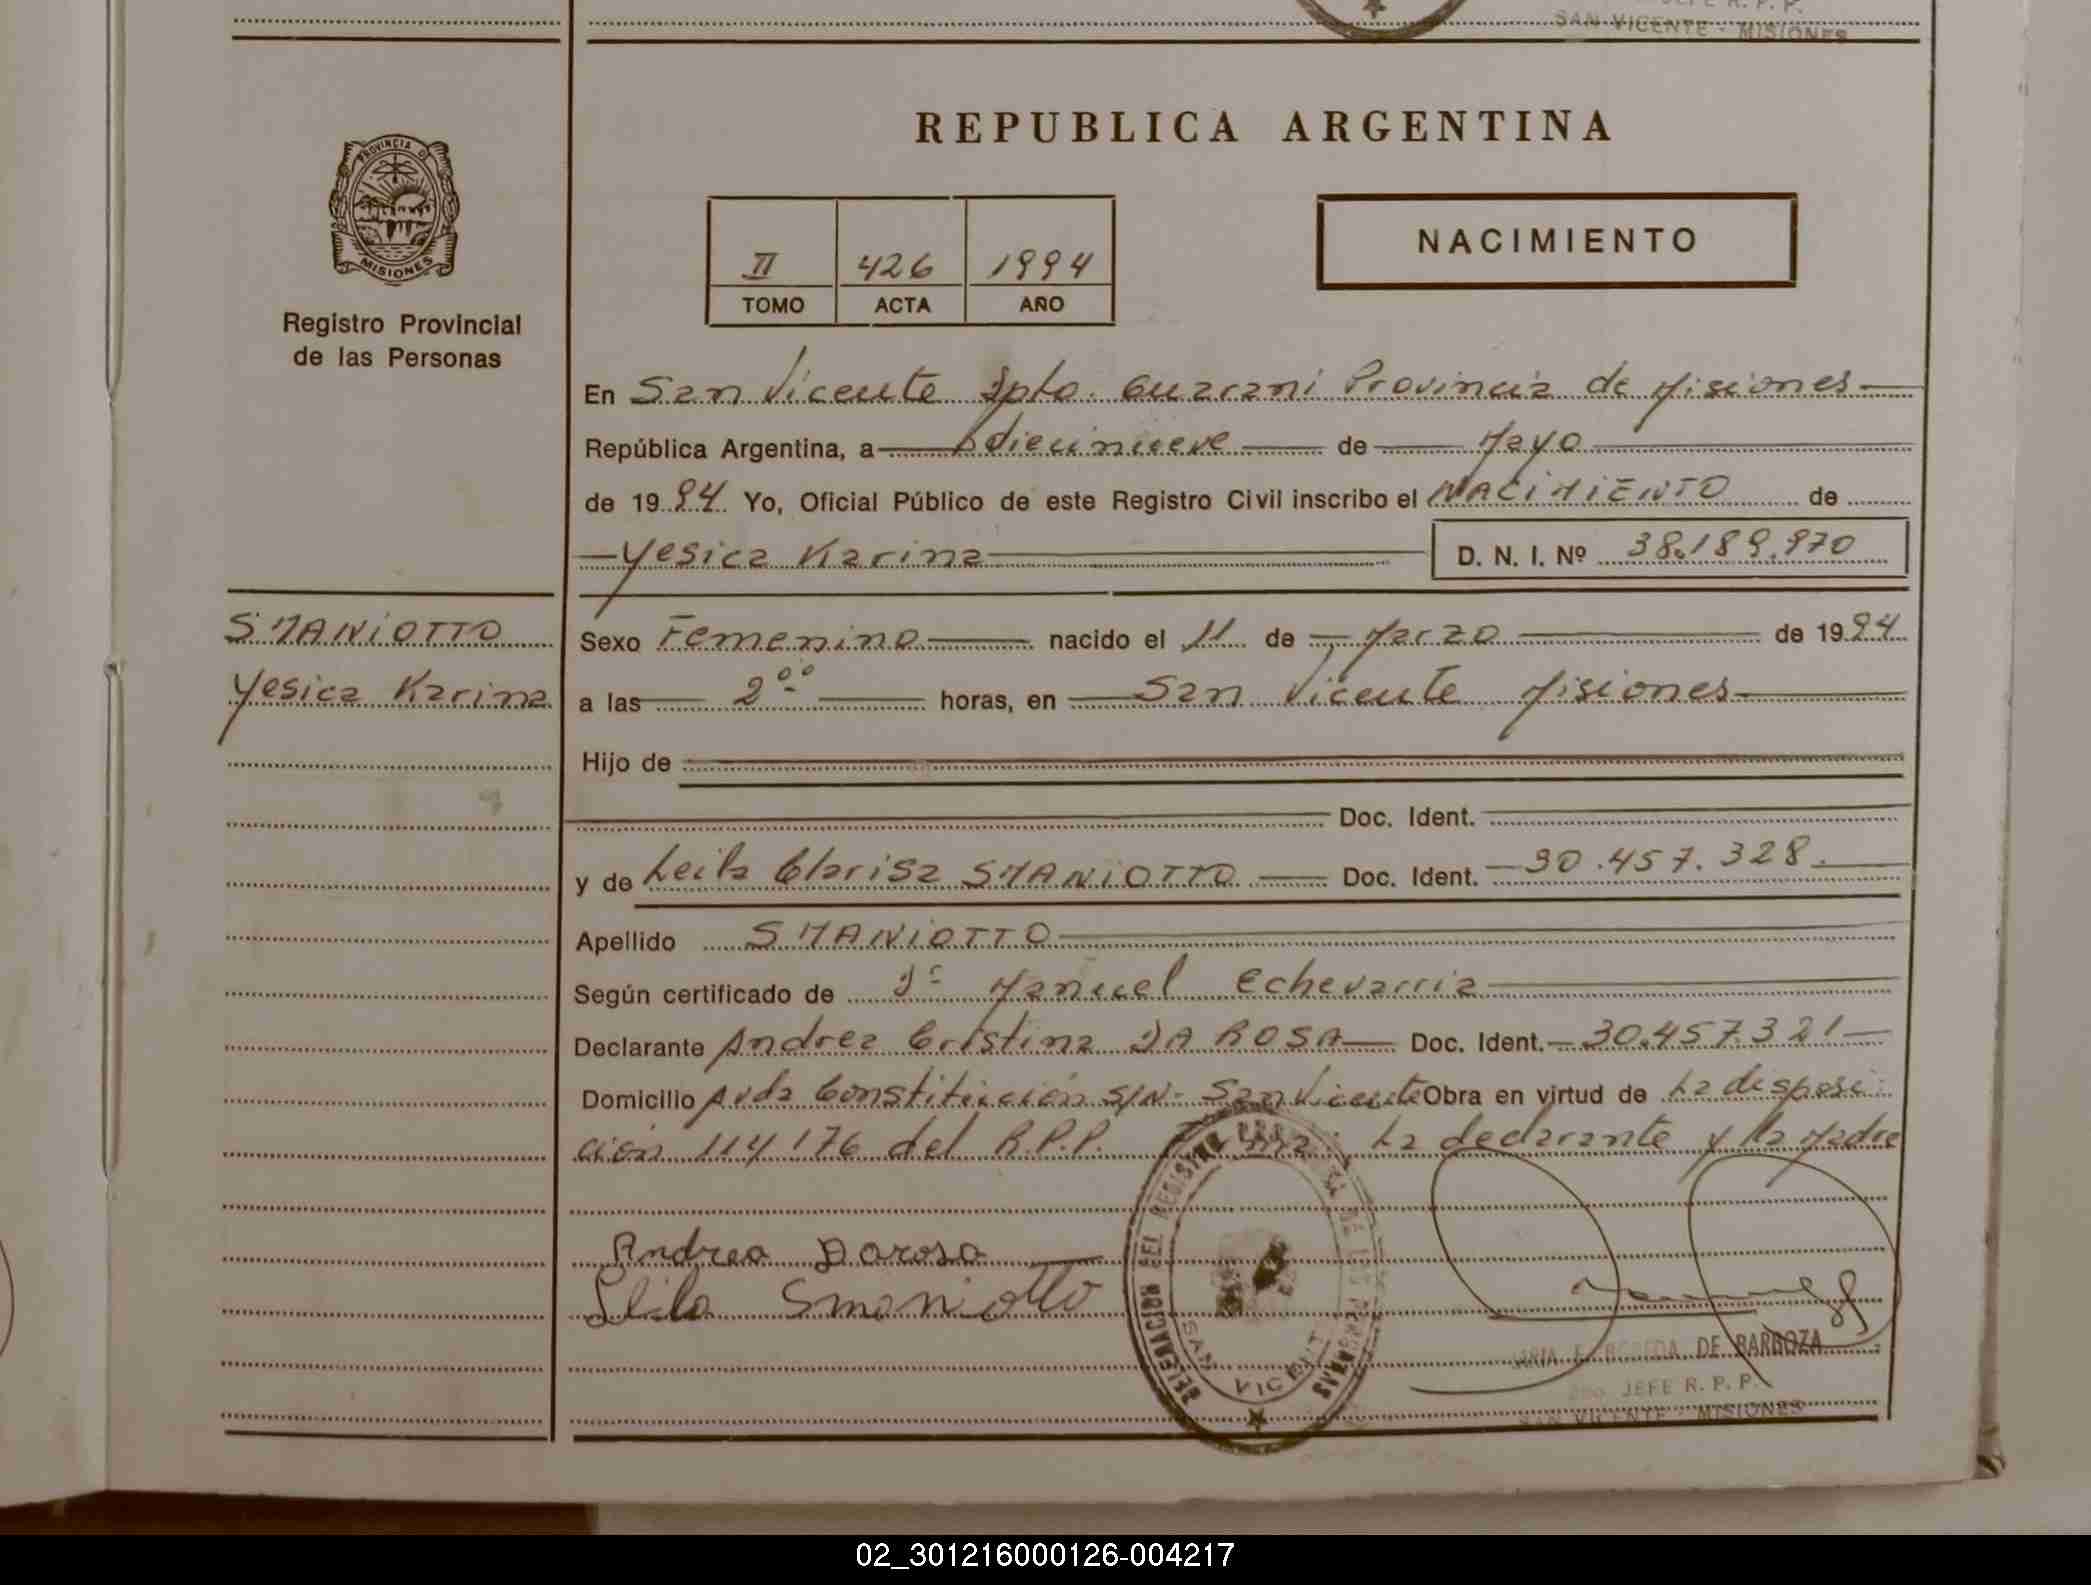 JEFE R. P. P.
SAN VICENTE - MISIONES
PROVINCIA DE
MISIONES
Registro Provincial
de las Personas
REPUBLICA ARGENTINA
II 426 1994
TOMO ACTA AÑO
NACIMIENTO
En San Vicente Dpto. Guarani Provincia de Misiones
República Argentina, a diecinueve de Mayo
de 1994 Yo, Oficial Público de este Registro Civil inscribo el NACIMIENTO de
Yesica Karina D. N. I. Nº 38.189.970
SMANIOTTO
Yesica Karina
Sexo Femenino nacido el 11 de Marzo de 1994
a las 2°° horas, en San Vicente Misiones
Hijo de
Doc. Ident.
y de Leila Clarisa SMANIOTTO Doc. Ident. 30.457.328.
Apellido SMANIOTTO
Según certificado de Dr Manuel Echevarria
Declarante Andrea Cristina DA ROSA Doc. Ident. 30.457.321
Domicilio Avda Constitución S/N - San Vicente Obra en virtud de La disposi
ción 114/76 del R.P.P. Firma: La declarante y la Madre
Andrea Darosa
Leila Smaniotto
DELEGACION DEL REGISTRO DE LAS PERSONAS
SAN VICENTE
DE BARBOZA
JEFE R. P. P.
SAN VICENTE - MISIONES
02_301216000126-004217